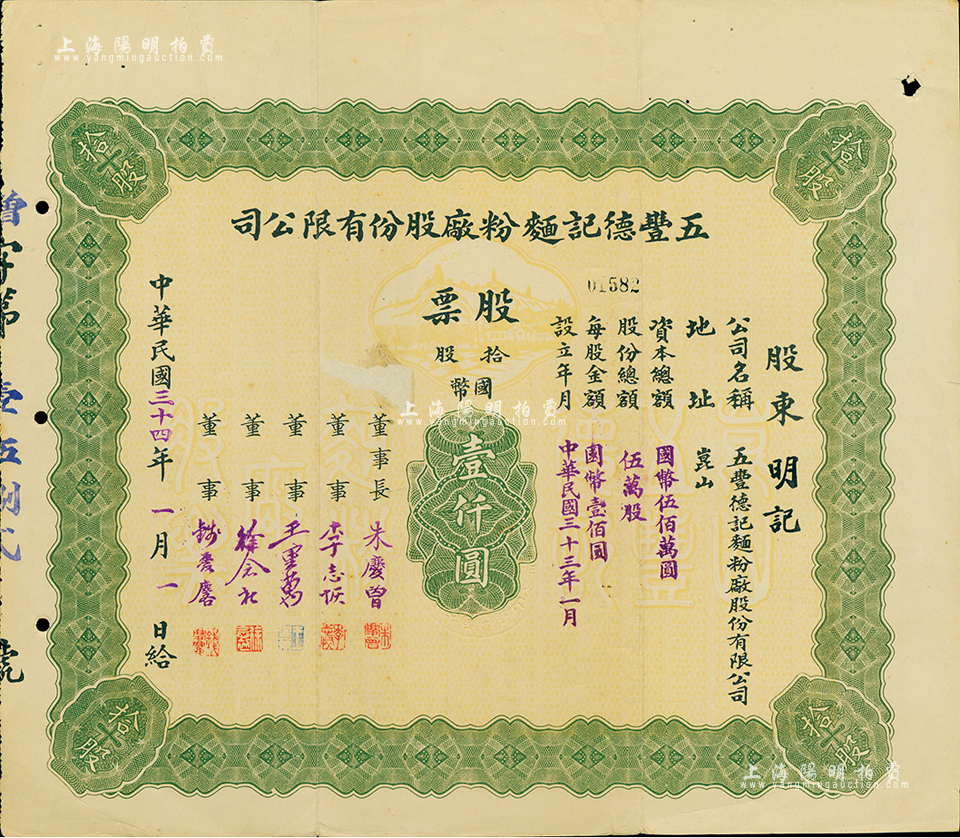 上海陽明拍賣
www.yangmingauction.com
拾股
拾股
五豐德記麵粉廠股份有限公司
01582
股票
拾股
國幣
壹仟圓
股東 明記
公司名稱 五豐德記麵粉廠股份有限公司
地址 崑山
資本總額 國幣伍佰萬圓
股份總額 伍萬股
每股金額 國幣壹佰圓
設立年月 中華民國三十三年一月
董事長 朱慶曾
董事 李志
董事 王
董事 徐
董事 錢
中華民國三十四年一月一日給
字第
號
上海陽明拍賣
www.yangmingauction.com
拾股
拾股
上海陽明拍賣
www.yangmingauction.com